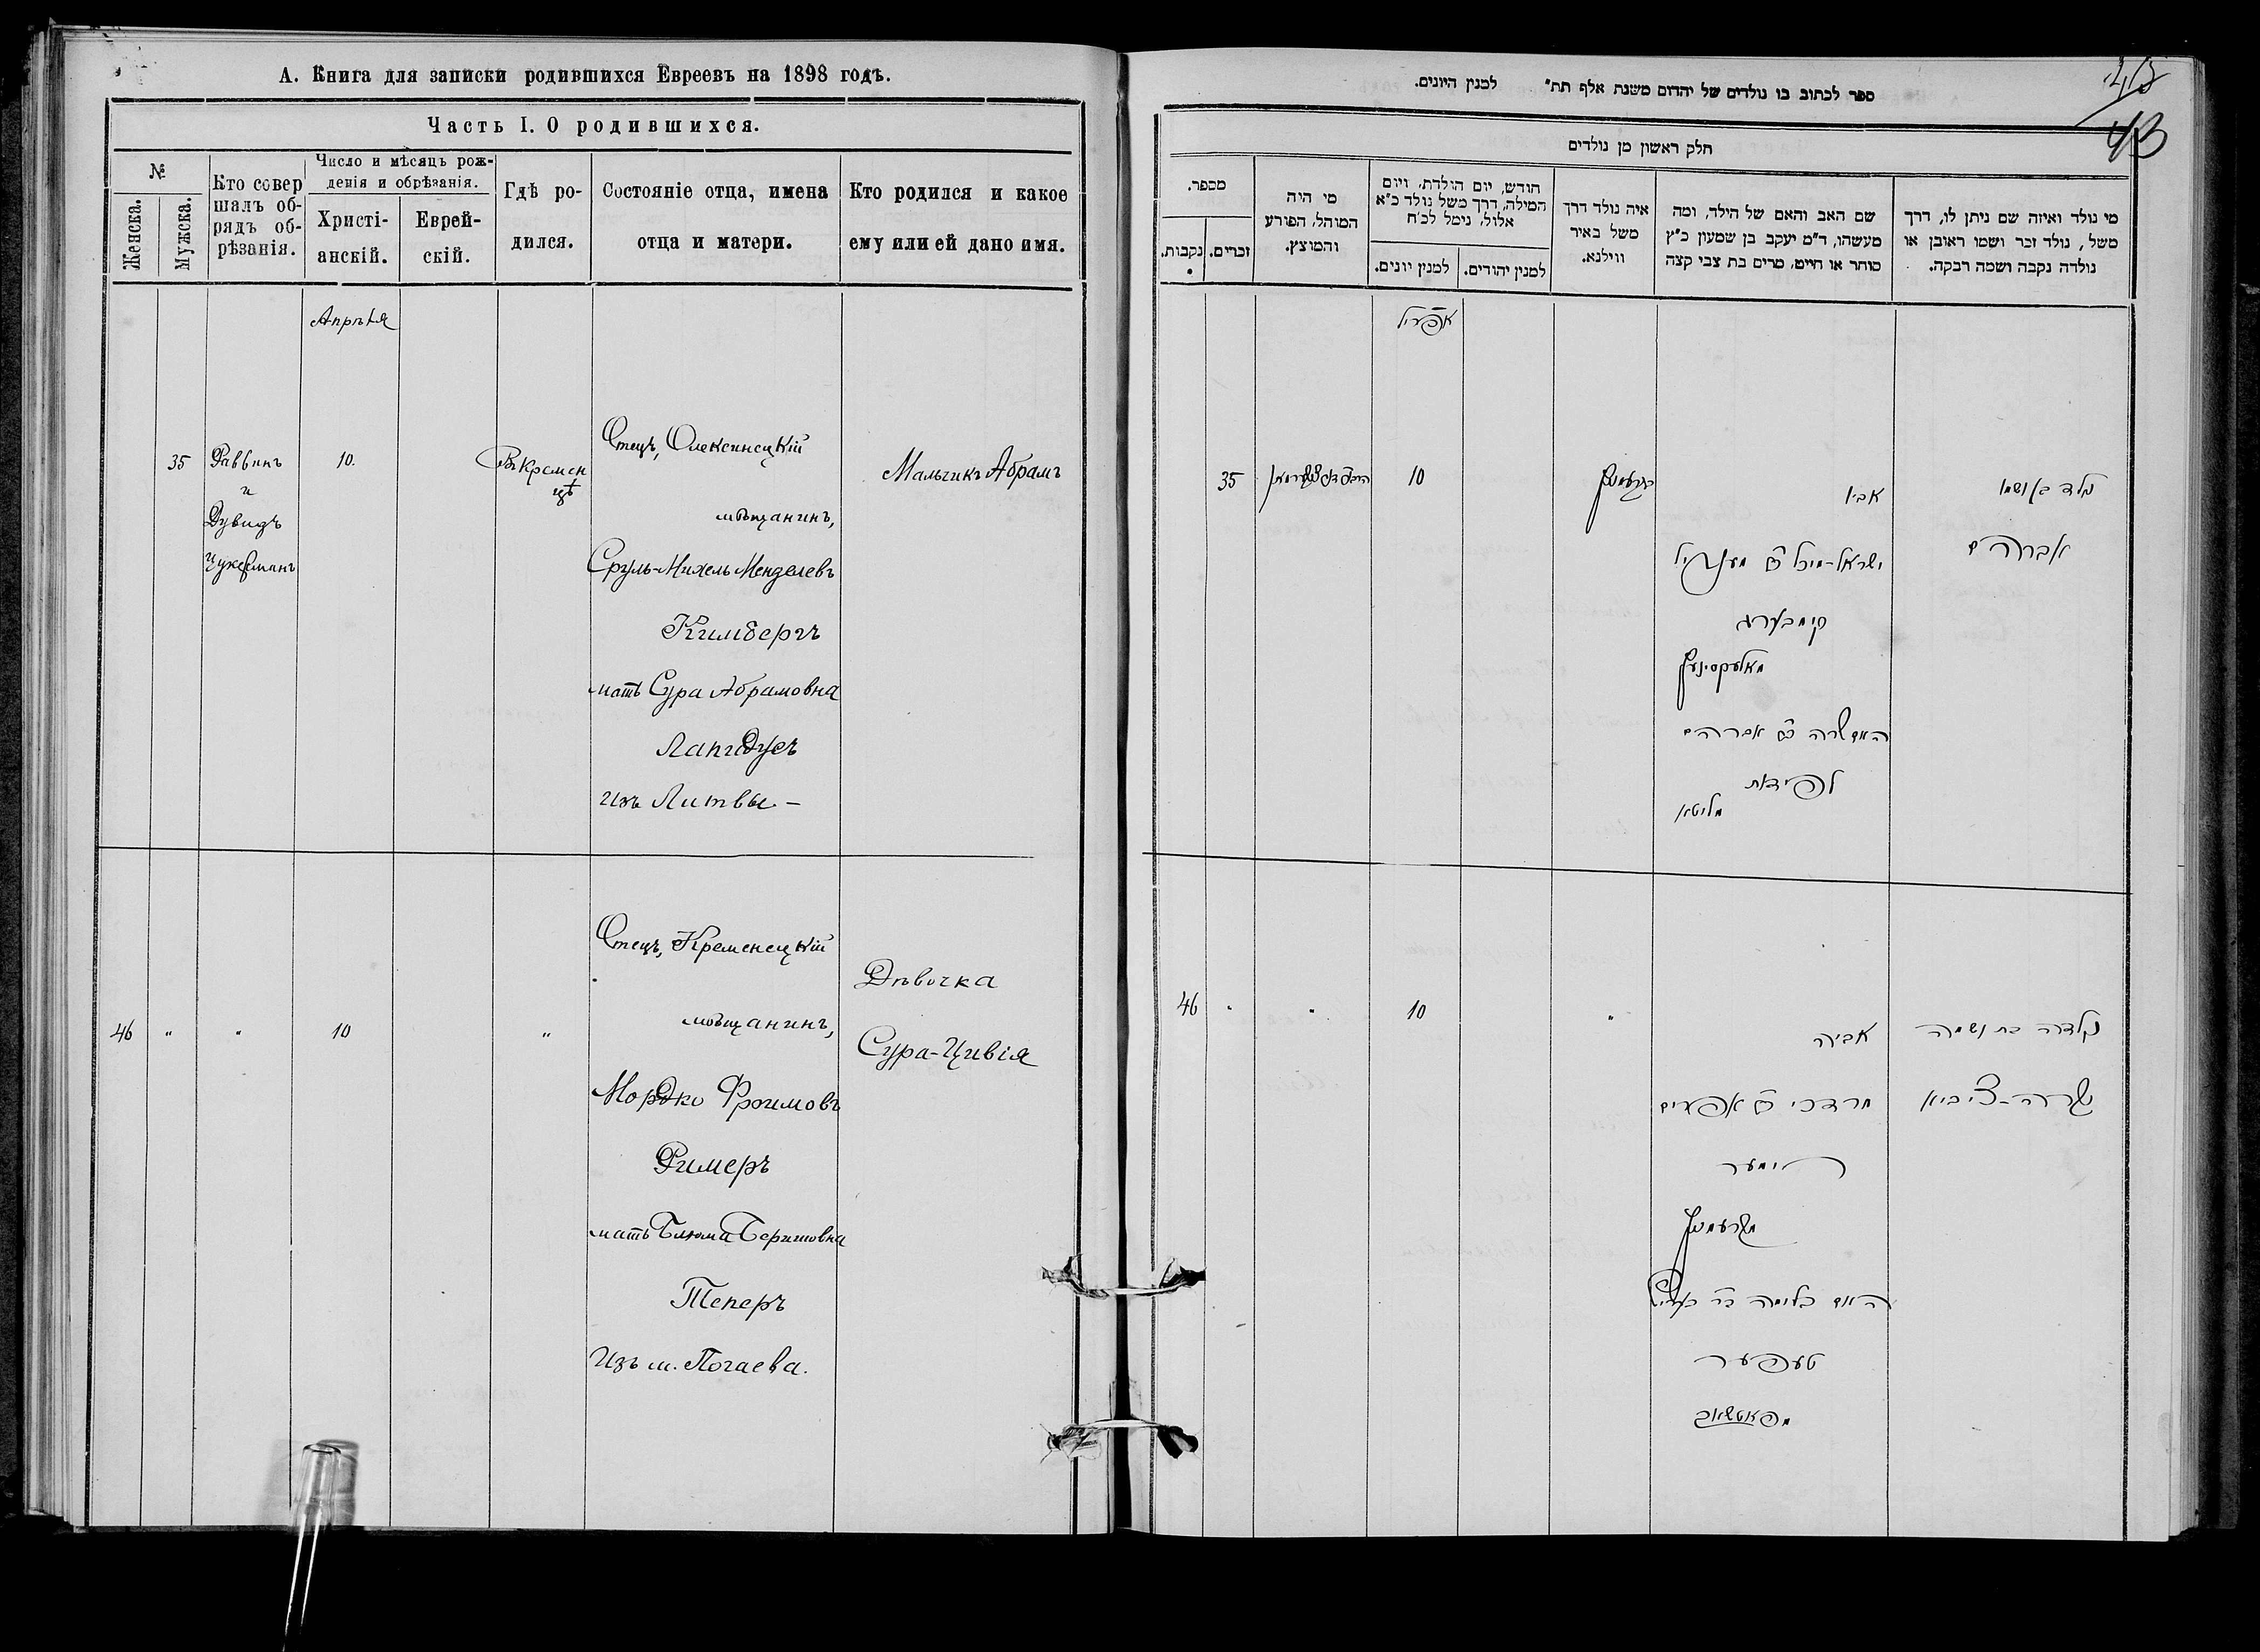 А. Книга для записки родившихся Евреевъ на 1898 годъ.
Часть I. О родившихся.
№
Женска.
Мужска.
Кто совер
шалъ об-
рядъ об-
рѣзанія.
Число и мѣсяцъ рож-
денія и обрѣзанія.
Христі-
анскій.
Еврей-
скій.
Гдѣ ро-
дился.
Состояніе отца, имена
отца и матери.
Кто родился и какое
ему или ей дано имя.
Апрѣля
35
Раввинъ
и
Дувидъ
Цукерманъ
10.
Въ Кремен
цѣ
Отецъ, Олексинецкій
мѣщанинъ,
Сруль-Михель Менделевъ
Кимбергъ
мать Сура Абрамовна
Лапидусъ
изъ Литвы –
Мальчикъ Абрамъ
46
"
"
10
"
Отецъ, Кременецкій
мѣщанинъ,
Мордко Фроимовъ
Римеръ
мать Блюма Беришовна
Теперъ
Изъ м. Почаева.
Дѣвочка
Сура-Цивія
43
ספר לכתוב בו נולדים של יהדום משנת אלף תת״ למנין היונים.
חלק ראשון מן נולדים
מספר.
נקבות.
זכרים.
מי היה
המוהל, הפורע
והמוצץ.
חודש, יום הולדת, ויום
המילה, דרך משל נולד כ״א
אלול, נימל לכ״ח
למנין יונים.
למנין יהודים.
איה נולד דרך
משל באיר
ווילנא.
שם האב והאם של הילד, ומה
מעשהו, ד״מ יעקב בן שמעון כ״ץ
סוחר או חייט, מרים בת צבי קצה
מי נולד ואיזה שם ניתן לו, דרך
משל, נולד זכר ושמו ראובן או
נולדה נקבה ושמה רבקה.
אפריל
35
10
בקרעמניץ
אביו
ישראל-מיכל ב״ר מענדיל
קימבערג
מאלעקסיניץ
האם שרה ב״ר אברהם
לפידות
מליטא
נולד בן ושמו
אברהם
46
"
"
10
"
אביה
מרדכי ב״ר אפרים
רימער
מקרעמניץ
האם בלומה ב״ר בעריש
טעפער
מפאטשאב
נולדה בת ושמה
שרה-ציביא